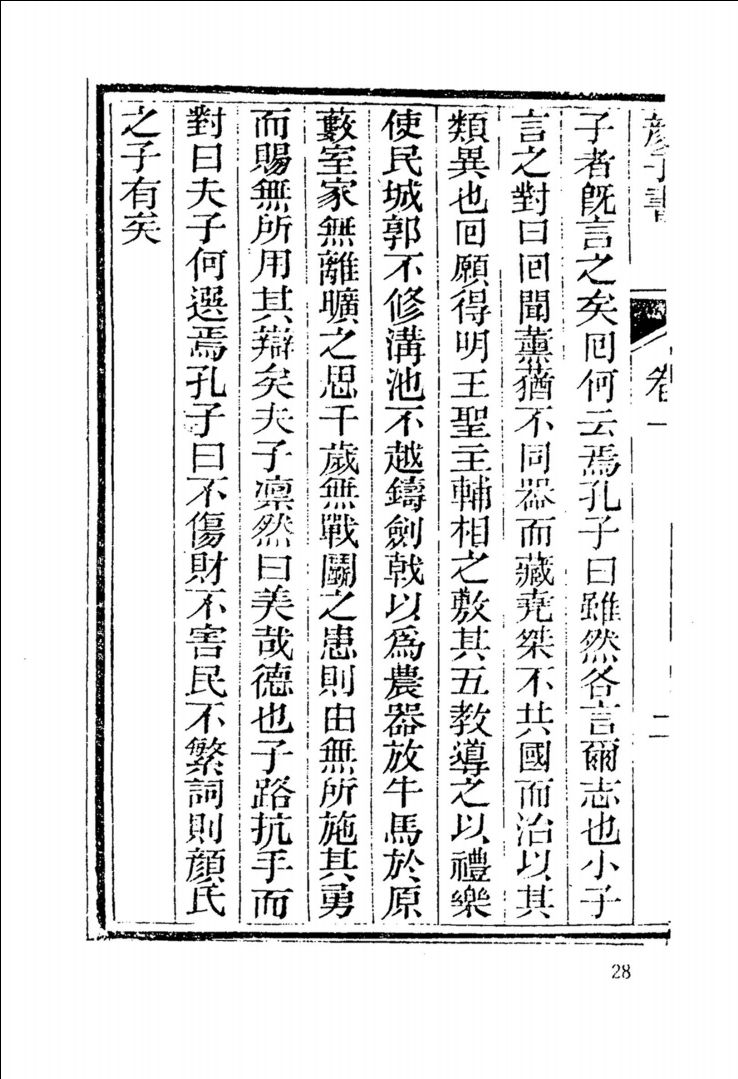 顏子書
卷一
二
子者旣言之矣囘何云焉孔子曰雖然各言爾志也小子
言之對曰囘聞薰蕕不同器而藏堯桀不共國而治以其
類異也囘願得明王聖主輔相之敷其五教導之以禮樂
使民城郭不修溝池不越鑄劍戟以爲農器放牛馬於原
藪室家無離曠之思千歲無戰鬭之患則由無所施其勇
而賜無所用其辯矣夫子凛然曰美哉德也子路抗手而
對曰夫子何選焉孔子曰不傷財不害民不繁詞則顏氏
之子有矣
28